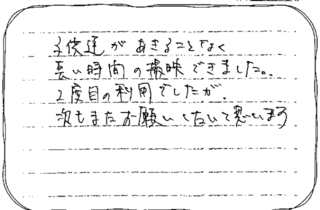 子供達があきることなく
長い時間の撮映できました。
2度目の利用でしたが、
次もまたお願いしたいと思います